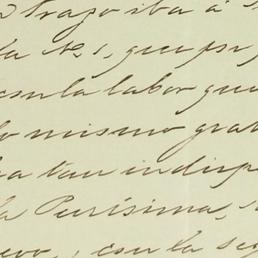 trazo iba á
la No. 1, que pr
con la labor que
lo mismo grat
ha tan indisp
la Purísima, 
evo, con la seg